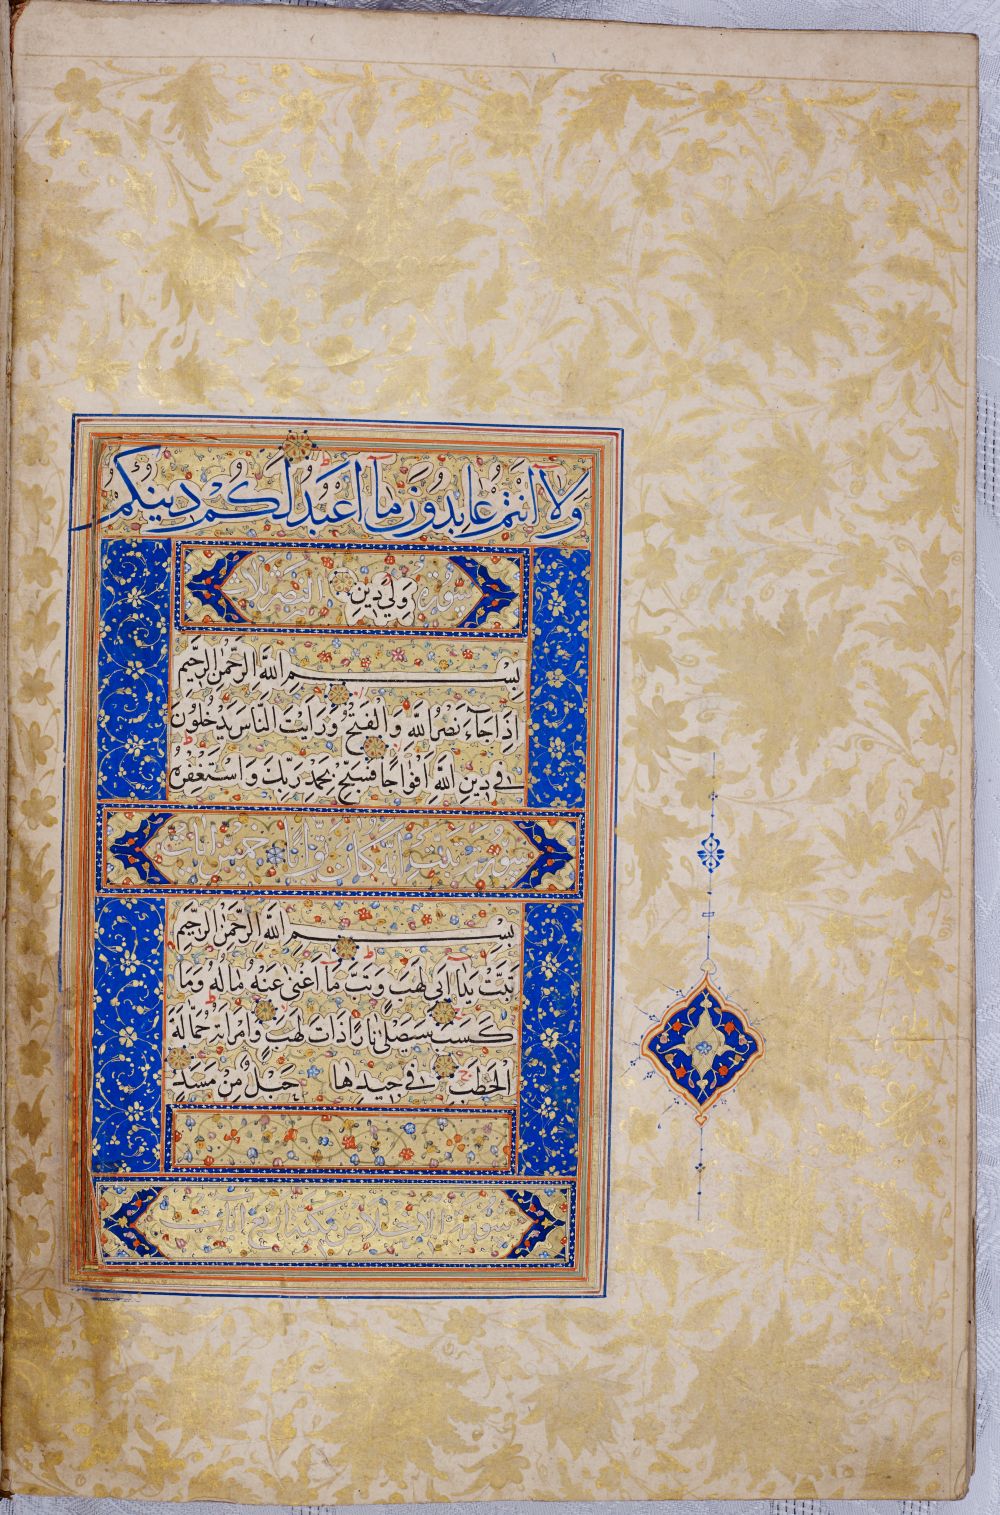 وَلَا أَنْتُمْ عَابِدُونَ مَا أَعْبُدُ لَكُمْ دِينُكُمْ
سورة وَلِيَ دِينِ النصر
بِسْمِ اللَّهِ الرَّحْمٰنِ الرَّحِيمِ
اِذَا جَاءَ نَصْرُ اللَّهِ وَالْفَتْحُ وَرَاَيْتَ النَّاسَ يَدْخُلُونَ
فِي دِينِ اللَّهِ اَفْوَاجًا فَسَبِّحْ بِحَمْدِ رَبِّكَ وَاسْتَغْفِرْهُ
سورة تبت اِنَّهُ كَانَ تَوَّابًا خمس ايات
بِسْمِ اللَّهِ الرَّحْمٰنِ الرَّحِيمِ
تَبَّتْ يَدَا اَبِي لَهَبٍ وَتَبَّ مَا اَغْنٰى عَنْهُ مَالُهُ وَمَا
كَسَبَ سَيَصْلٰى نَارًا ذَاتَ لَهَبٍ وَامْرَاَتُهُ حَمَّالَةَ
الْحَطَبِ فِي جِيدِهَا حَبْلٌ مِنْ مَسَدٍ
سورة الاخلاص مكية اربع ايات